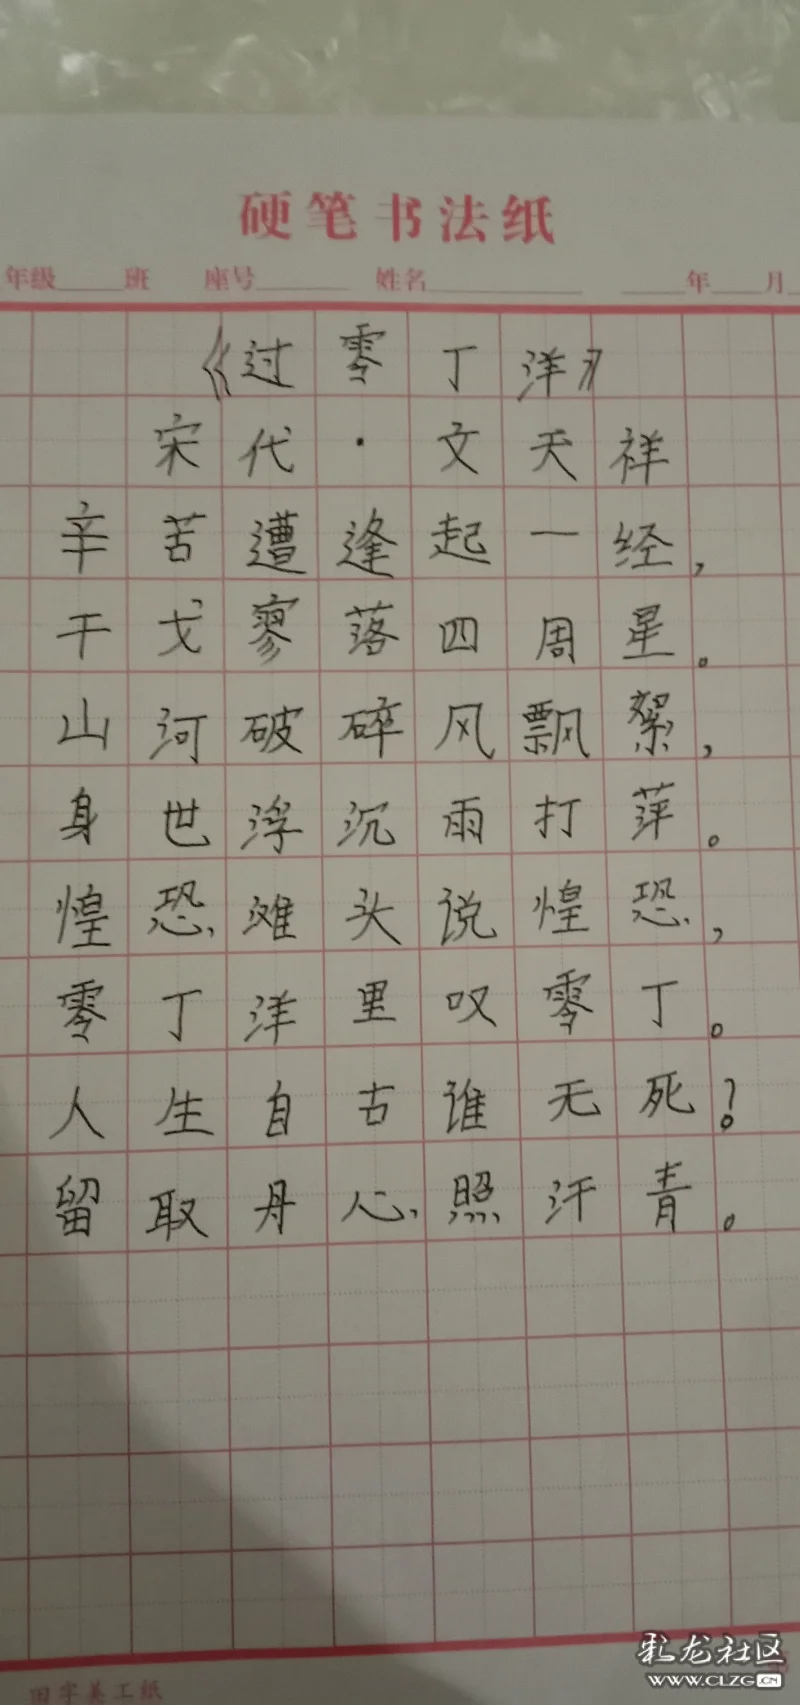 硬笔书法纸
年级 班 座号 姓名 年 月
《过零丁洋》
宋代·文天祥
辛苦遭逢起一经，
干戈寥落四周星。
山河破碎风飘絮，
身世浮沉雨打萍。
煌恐滩头说煌恐，
零丁洋里叹零丁。
人生自古谁无死？
留取丹心照汗青。
田字美工纸
彩龙社区
www.CLZG.CN